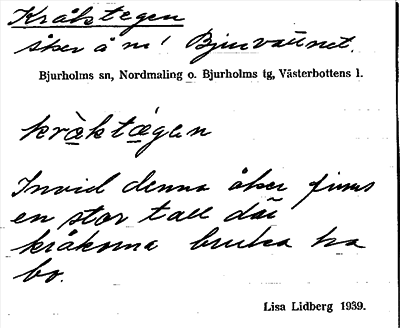 Kråkstegen
åker å n:a Bjurvattnet.
Bjurholms sn, Nordmaling o. Bjurholms tg, Västerbottens l.
kràktégen
Invid denna åker finns
en stor tall där
kråkorna bruka ha
bo.
Lisa Lidberg 1939.